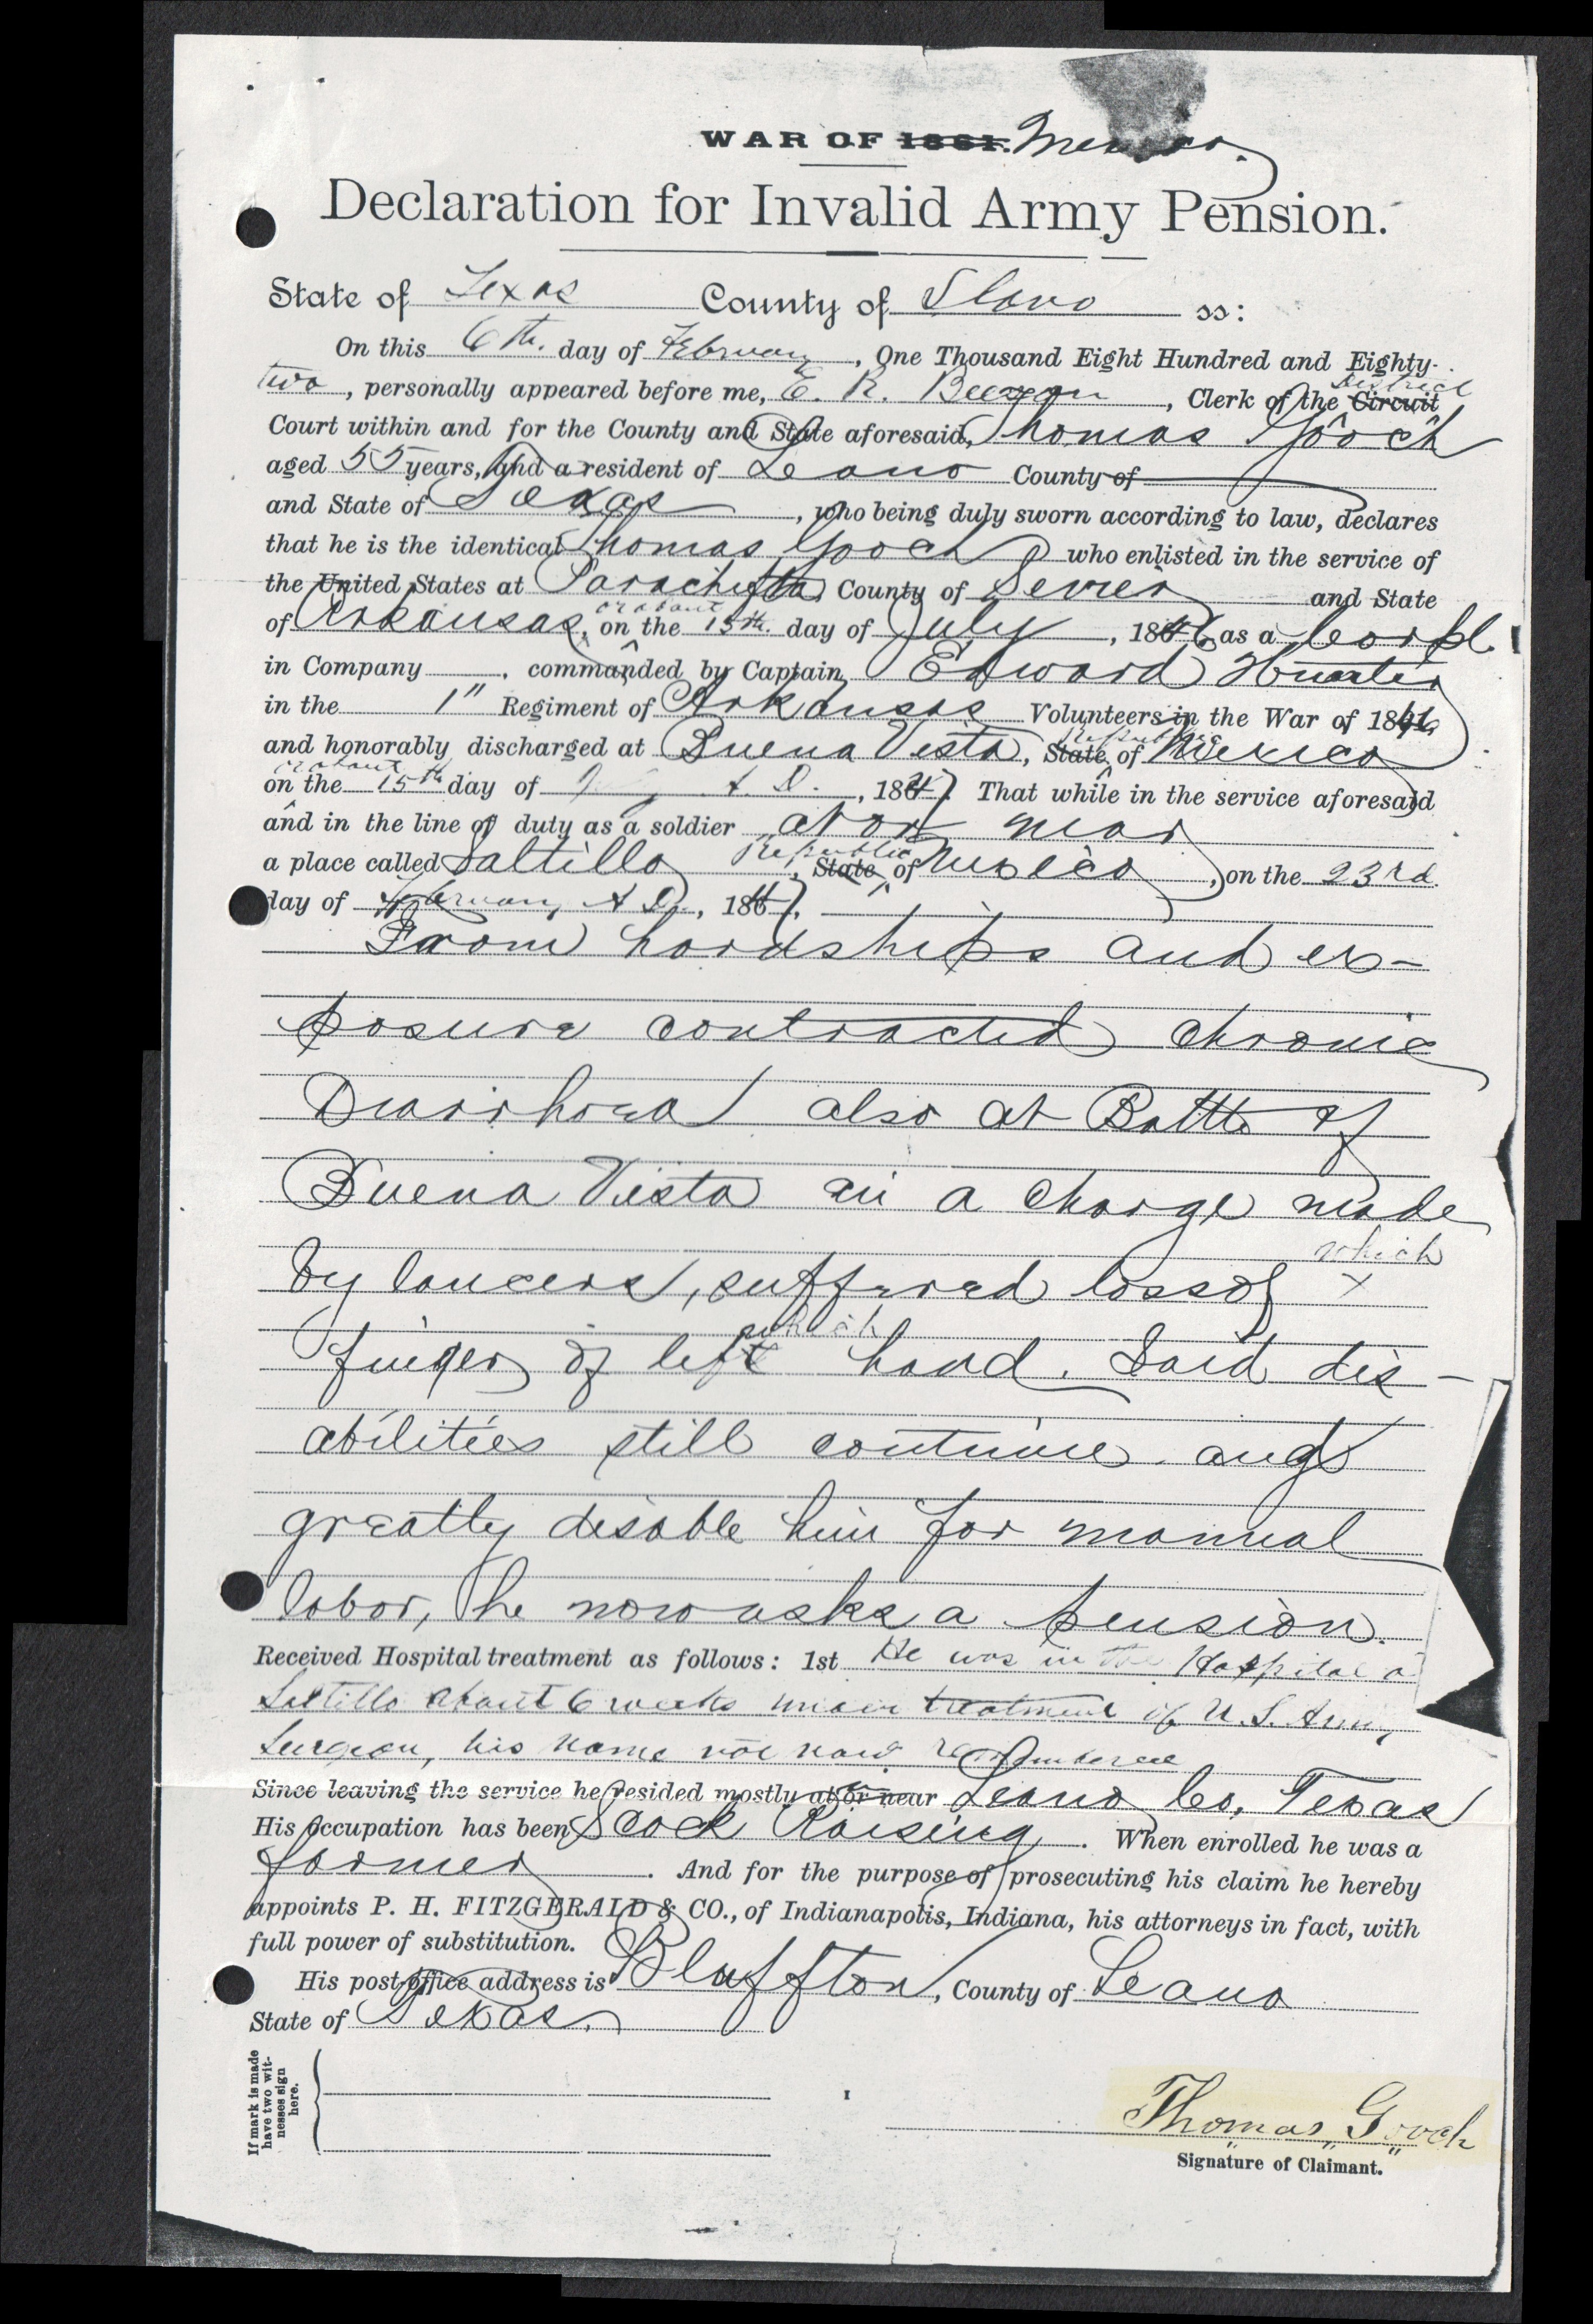 WAR OF 1861. Mexico.
Declaration for Invalid Army Pension.
State of Texas County of Llano ss:
On this 6th. day of February, One Thousand Eight Hundred and Eighty-
two, personally appeared before me, E. R. Beeson, Clerk of the Circuit District
Court within and for the County and State aforesaid, Thomas Gooch
aged 55 years, and a resident of Leano County of
and State of Texas, who being duly sworn according to law, declares
that he is the identical Thomas Gooch who enlisted in the service of
the United States at Parachifta, County of Sevier and State
of Arkansas, on the or about 15th. day of July, 1846, as a Corpl.
in Company, commanded by Captain Edward Hunter
in the 1" Regiment of Arkansas Volunteers in the War of 1846,
and honorably discharged at Buena Vista, State Republic of Mexico
or about
on the 15th day of A. D., 1847. That while in the service aforesaid
and in the line of duty as a soldier at or near
a place called Saltillo, State Republic of Mexico, on the 23rd.
day of February A D., 1847,
From hardships and ex-
posure contracted chronic
Diarrhoea also at Battle of
Buena Vista in a charge made
by lancers, suffered loss of x which
finger of left which hand. Said dis-
abilities still continue and
greatly disable him for manual
labor, he now asks a pension.
Received Hospital treatment as follows: 1st He was in the Hospital a
Saltillo about 6 weeks under treatment of U.S. Army
Surgeon, his name not now remembered
Since leaving the service he resided mostly at or near in Leano Co. Texas
His occupation has been Stock Raising. When enrolled he was a
farmer. And for the purpose of prosecuting his claim he hereby
appoints P. H. FITZGERALD & CO., of Indianapolis, Indiana, his attorneys in fact, with
full power of substitution.
His post-office address is Bluffton, County of Leano
State of Texas.
If mark is made
have two wit-
nesses sign
here.
Thomas Gooch
Signature of Claimant.